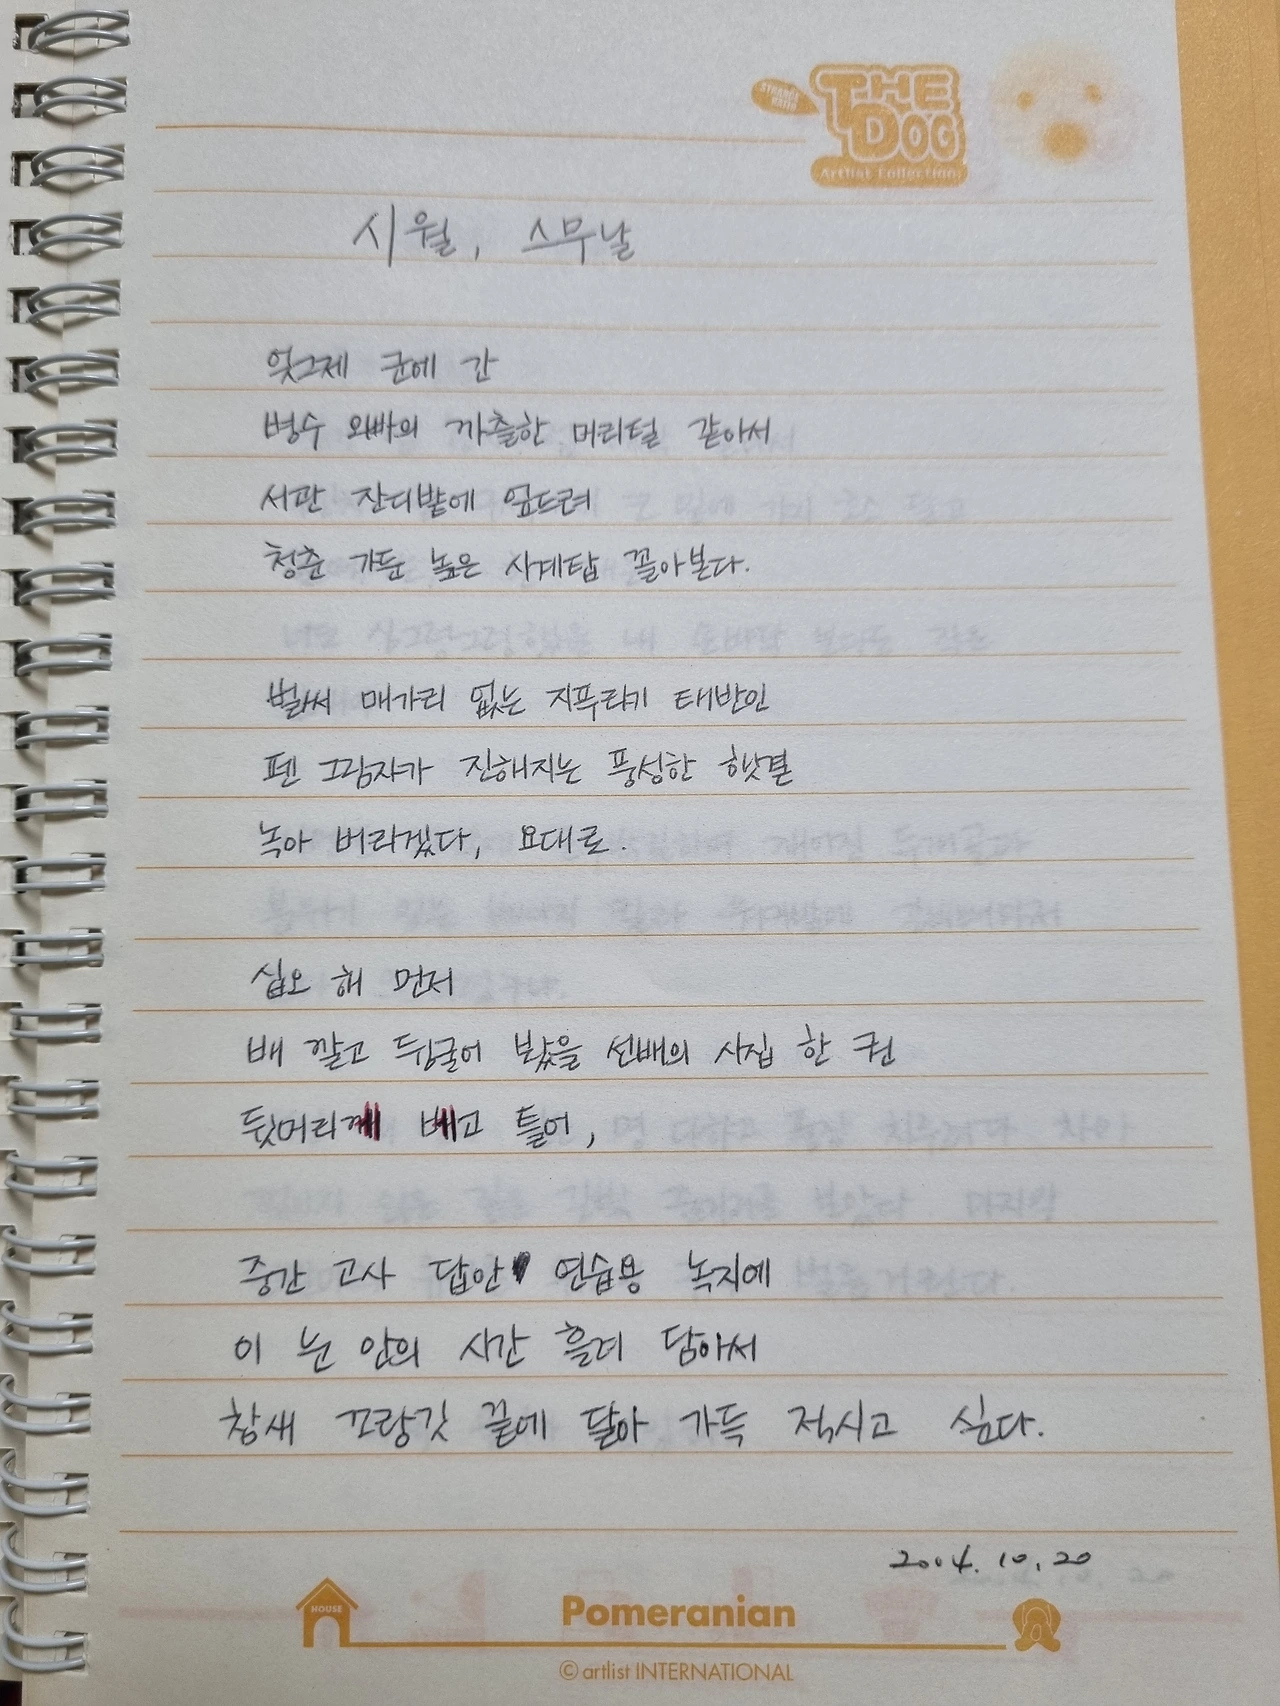 STRANGE RATIO
THE DOG
Artlist Collection
시월, 스무날
엊그제 군에 간
병수 오빠의 까츨한 머리털 같아서
서관 잔디밭에 엎드려
청춘 가둔 높은 시계탑 꼴아본다.
벌써 매가리 없는 지푸라기 태반인
펜 그림자가 진해지는 풍성한 햇결
녹아 버리겠다, 요대로.
십오 해 먼저
배 깔고 뒹굴어 봤을 선배의 시집 한 권
뒷머리께 베고 틀어,
중간 고사 답안 연습용 녹지에
이 눈 안의 시간 흘려 담아서
참새 꼬랑깃 끝에 달아 가득 적시고 싶다.
2004. 10. 20
HOUSE
Pomeranian
© artlist INTERNATIONAL